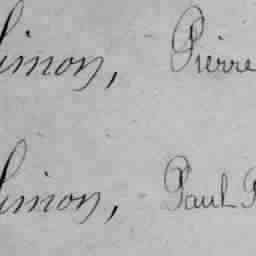 Simon, Pierre
Simon, Paul